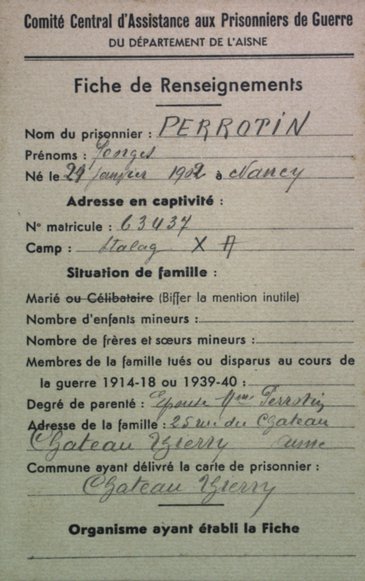 Comité Central d'Assistance aux Prisonniers de Guerre
DU DÉPARTEMENT DE L'AISNE
Fiche de Renseignements
Nom du prisonnier : PERROTIN
Prénoms : Georges
Né le janvier 1902 à Nancy
Adresse en captivité :
N° matricule : 63437
Camp : Stalag X A
Situation de famille :
Marié ou Célibataire (Biffer la mention inutile)
Nombre d'enfants mineurs :
Nombre de frères et sœurs mineurs :
Membres de la famille tués ou disparus au cours de
la guerre 1914-18 ou 1939-40 :
Degré de parenté : Epouse Mme Perrotin
Adresse de la famille : 25 rue du Chateau
Chateau Thierry Aisne
Commune ayant délivré la carte de prisonnier :
Chateau Thierry
Organisme ayant établi la Fiche